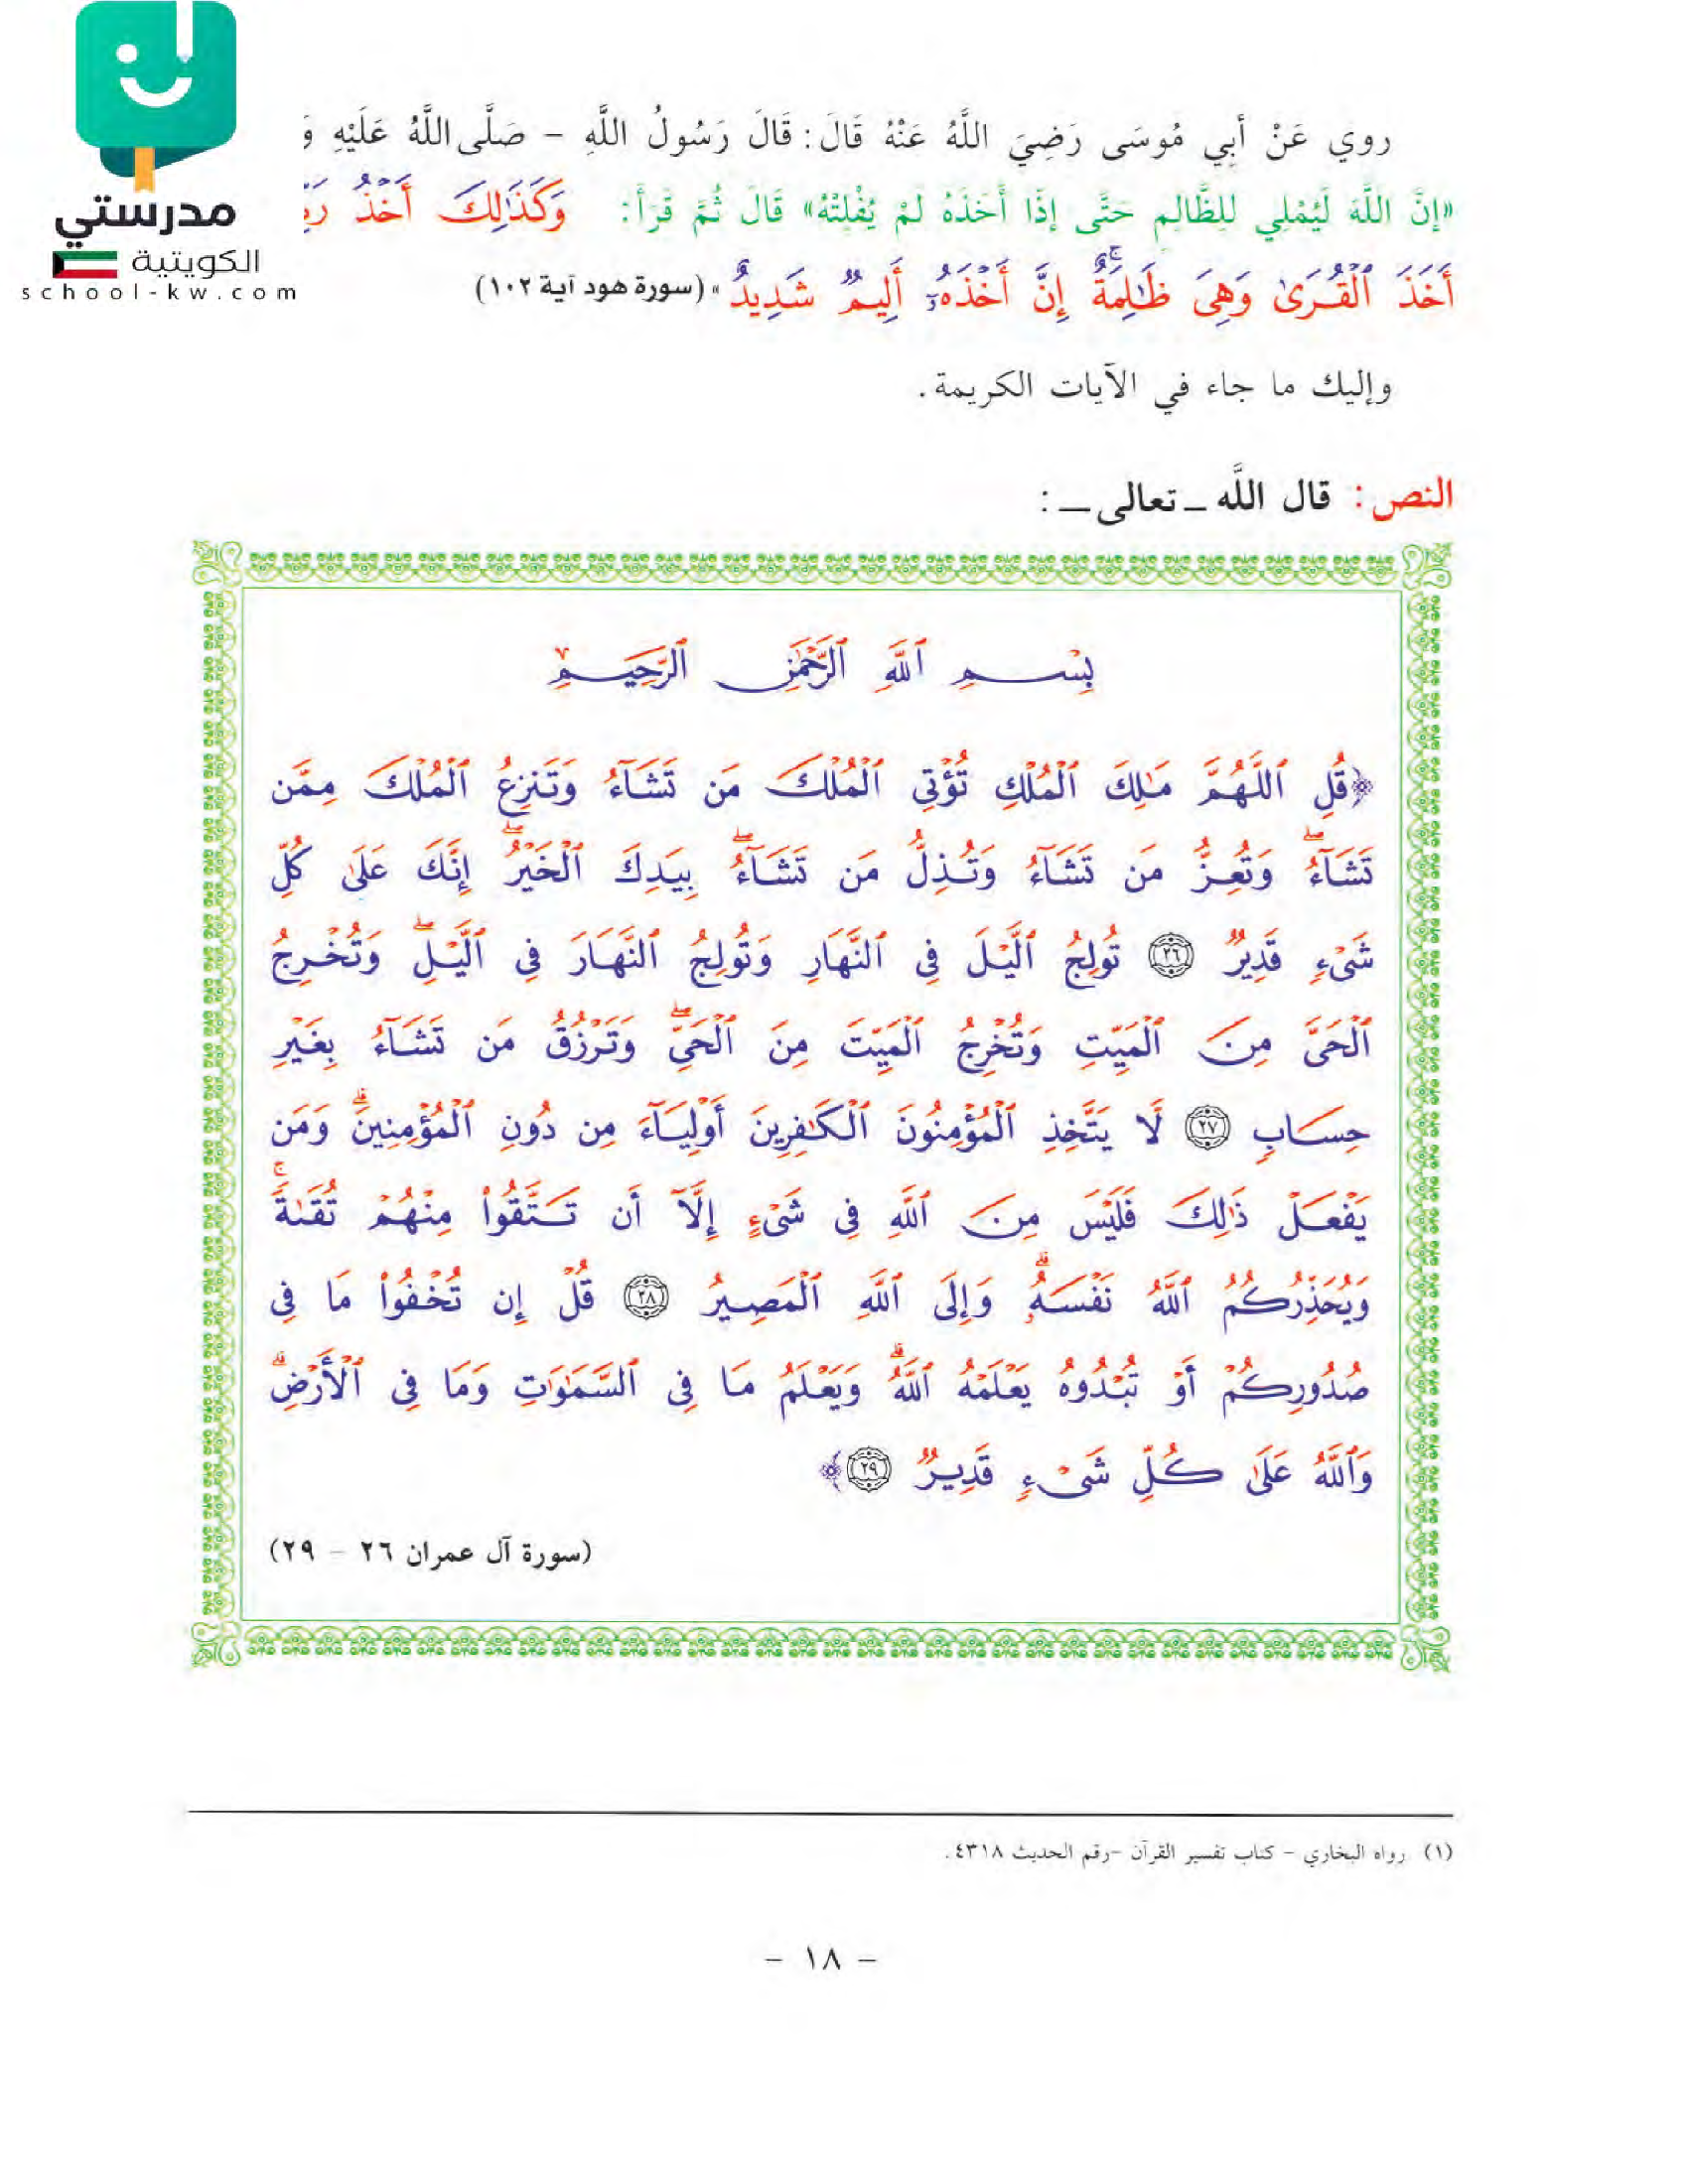 مدرستي
الكويتية
school-kw.com
روي عَنْ أَبِي مُوسَى رَضِيَ اللَّهُ عَنْهُ قَالَ: قَالَ رَسُولُ اللَّهِ – صَلَّى اللَّهُ عَلَيْهِ وَ
«إِنَّ اللَّهَ لَيُمْلِي لِلظَّالِمِ حَتَّى إِذَا أَخَذَهُ لَمْ يُفْلِتْهُ» قَالَ ثُمَّ قَرَأَ: وَكَذَٰلِكَ أَخْذُ
أَخَذَ ٱلْقُرَىٰ وَهِىَ ظَٰلِمَةٌ ۚ إِنَّ أَخْذَهُۥٓ أَلِيمٌ شَدِيدٌ » (سورة هود آية ١٠٢)
وإليك ما جاء في الآيات الكريمة.
النص: قال اللَّه ـ تعالى ـ :
بِسْمِ ٱللَّهِ ٱلرَّحْمَٰنِ ٱلرَّحِيمِ
﴿قُلِ ٱللَّهُمَّ مَٰلِكَ ٱلْمُلْكِ تُؤْتِى ٱلْمُلْكَ مَن تَشَآءُ وَتَنزِعُ ٱلْمُلْكَ مِمَّن
تَشَآءُ ۖ وَتُعِزُّ مَن تَشَآءُ وَتُذِلُّ مَن تَشَآءُ ۖ بِيَدِكَ ٱلْخَيْرُ ۖ إِنَّكَ عَلَىٰ كُلِّ
شَىْءٍ قَدِيرٌ ٢٦ تُولِجُ ٱلَّيْلَ فِى ٱلنَّهَارِ وَتُولِجُ ٱلنَّهَارَ فِى ٱلَّيْلِ ۖ وَتُخْرِجُ
ٱلْحَىَّ مِنَ ٱلْمَيِّتِ وَتُخْرِجُ ٱلْمَيِّتَ مِنَ ٱلْحَىِّ ۖ وَتَرْزُقُ مَن تَشَآءُ بِغَيْرِ
حِسَابٍ ٢٧ لَّا يَتَّخِذِ ٱلْمُؤْمِنُونَ ٱلْكَٰفِرِينَ أَوْلِيَآءَ مِن دُونِ ٱلْمُؤْمِنِينَ ۖ وَمَن
يَفْعَلْ ذَٰلِكَ فَلَيْسَ مِنَ ٱللَّهِ فِى شَىْءٍ إِلَّآ أَن تَتَّقُوا۟ مِنْهُمْ تُقَىٰةً ۗ
وَيُحَذِّرُكُمُ ٱللَّهُ نَفْسَهُۥ ۗ وَإِلَى ٱللَّهِ ٱلْمَصِيرُ ٢٨ قُلْ إِن تُخْفُوا۟ مَا فِى
صُدُورِكُمْ أَوْ تُبْدُوهُ يَعْلَمْهُ ٱللَّهُ ۗ وَيَعْلَمُ مَا فِى ٱلسَّمَٰوَٰتِ وَمَا فِى ٱلْأَرْضِ ۗ
وَٱللَّهُ عَلَىٰ كُلِّ شَىْءٍ قَدِيرٌ ٢٩﴾
(سورة آل عمران ٢٦ – ٢٩)
(١) رواه البخاري – كتاب تفسير القرآن –رقم الحديث ٤٣١٨.
– ١٨ –